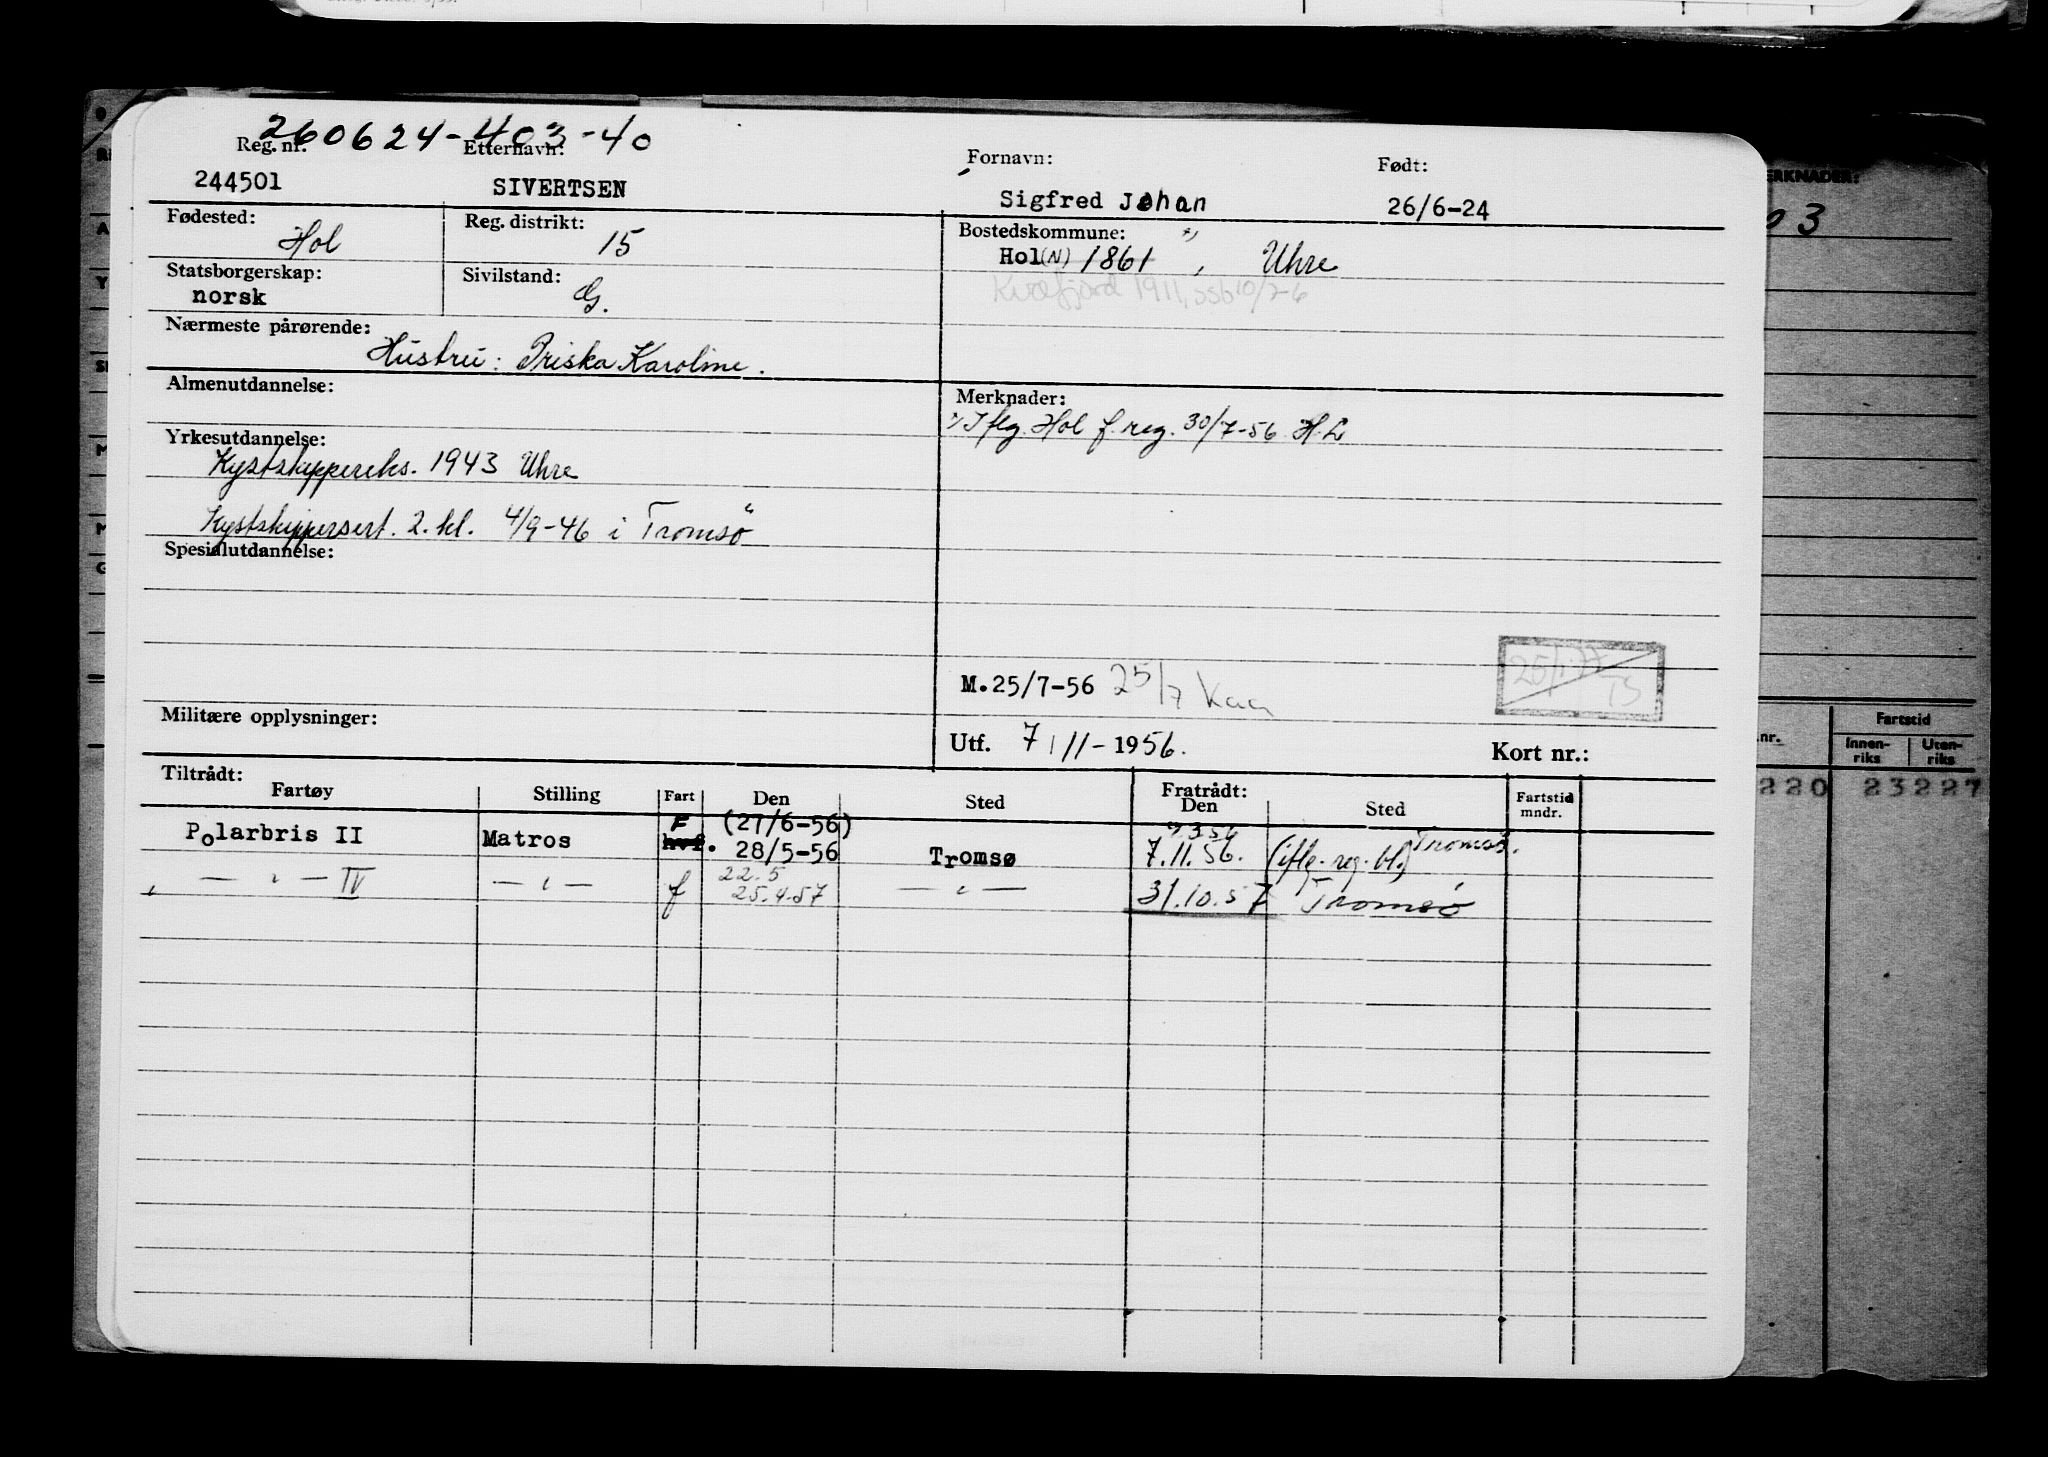 260624-403-40
Reg. nr. Etternavn: Fornavn: Født:
244501 SIVERTSEN Sigfred Johan 26/6-24
Fødested: Hol
Reg. distrikt: 15
Bostedskommune:
Hol (N) 1861, Uhre
Kvæfjord 1911, SSb 10/7-6
Statsborgerskap: norsk
Sivilstand: G.
Nærmeste pårørende:
Hustru: Priska Karoline.
Almenutdannelse:
Merknader:
Iflg. Hol f. reg. 30/7-56 H.L
Yrkesutdannelse:
Kystskippereks. 1943 Uhre
Kystskippersert. 2. kl. 4/9-46 i Tromsö
Spesialutdannelse:
M.25/7-56 25/7 Kaa
Militære opplysninger:
Utf. 7/11-1956.
Kort nr.:
Tiltrådt: Fratrådt:
Fartøy Stilling Fart Den Sted Den Sted Fartstid mndr.
F (27/6-56)
Polarbris II Matros hvf. 28/5-56 Tromsø 7.11.56. (iflg. reg. bl.) Tromsø.
22.5
— " — IV — " — f 25.4.57 — " — 31.10.57 Tromsö
ERKNADER:
03
nr. Fartstid
Innen-riks Uten-riks
220 23227